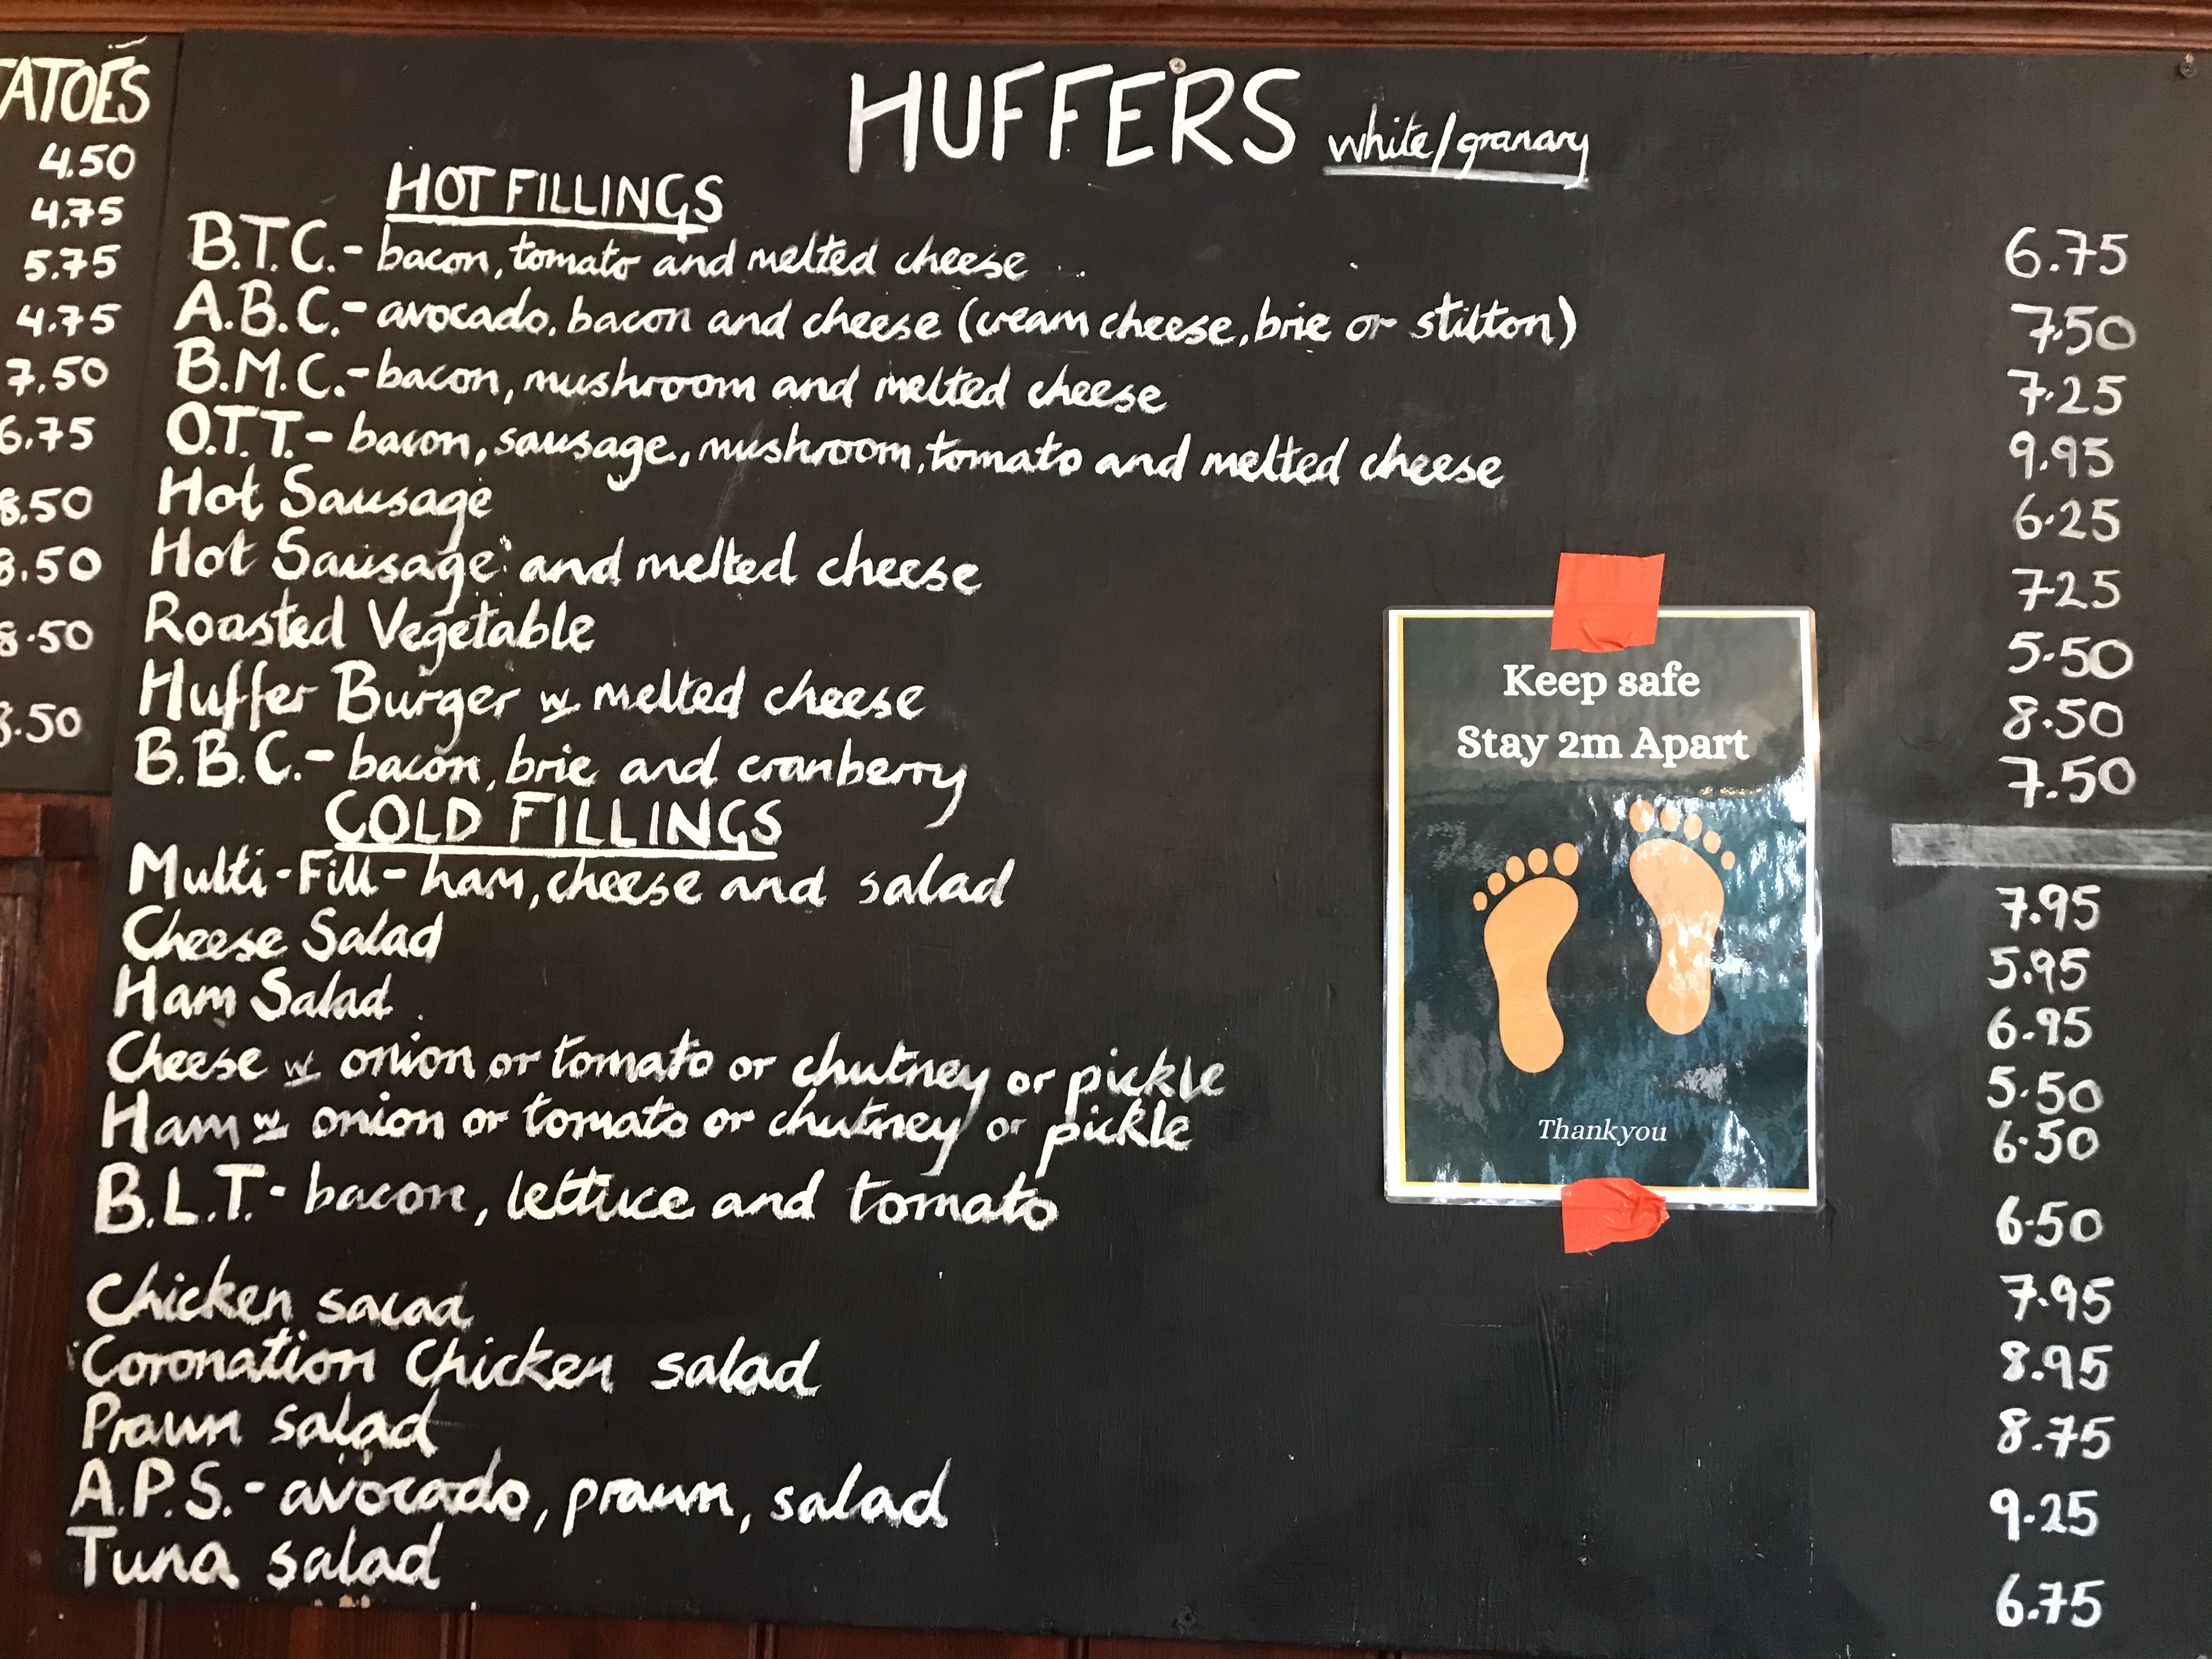 ATOES
4.50
4.75
5.75
4.75
7.50
6.75
8.50
8.50
8.50
8.50
HUFFERS white/granary
HOT FILLINGS
B.T.C. - bacon, tomato and melted cheese 6.75
A.B.C. - avocado, bacon and cheese (cream cheese, brie or stilton) 7.50
B.M.C. - bacon, mushroom and melted cheese 7.25
O.T.T. - bacon, sausage, mushroom, tomato and melted cheese 9.95
Hot Sausage 6.25
Hot Sausage and melted cheese 7.25
Roasted Vegetable 5.50
Huffer Burger w melted cheese 8.50
B.B.C. - bacon, brie and cranberry 7.50
COLD FILLINGS
Multi-Fill - ham, cheese and salad 7.95
Cheese Salad 5.95
Ham Salad 6.95
Cheese w onion or tomato or chutney or pickle 5.50
Ham w onion or tomato or chutney or pickle 6.50
B.L.T. - bacon, lettuce and tomato 6.50
Chicken salad 7.95
Coronation Chicken salad 8.95
Prawn salad 8.75
A.P.S. - avocado, prawn, salad 9.25
Tuna salad 6.75
Keep safe
Stay 2m Apart
Thankyou